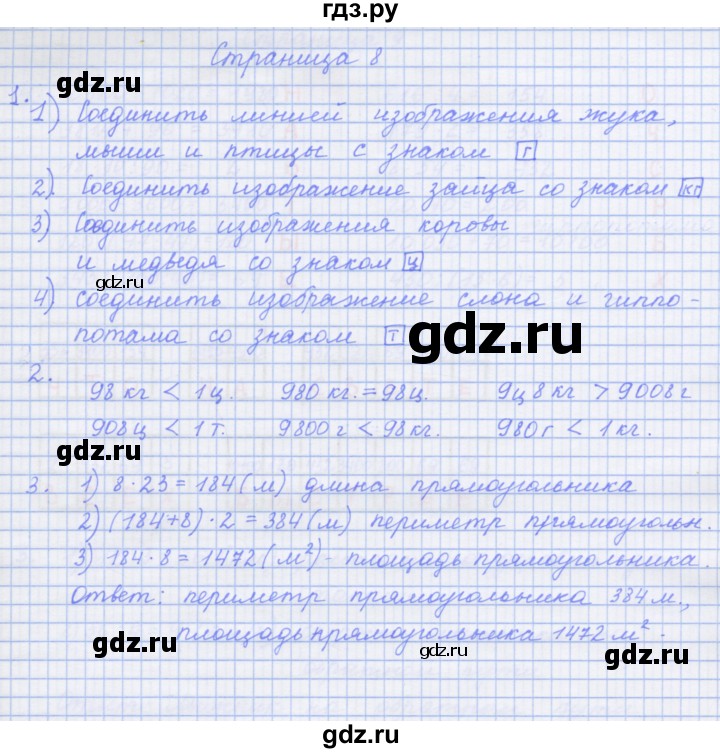 гдз.ру
Страница 8
gdz.ru gdz.ru
1. 1) Соединить линией изображения жука,
мыши и птицы с знаком г
2) Соединить изображение зайца со знаком кг
3) Соединить изображения коровы
и медведя со знаком ц
gdz.ru
4) соединить изображение слона и гиппо-
потама со знаком т
gdz.ru
2.
98 кг < 1 ц. 980 кг. = 98 ц. 9 ц 8 кг > 9008 г
908 ц < 1 т. 9800 г < 98 кг. 980 г < 1 кг.
gdz.ru gdz.ru
3. 1) 8 · 23 = 184 (м) длина прямоугольника
2) (184+8) · 2 = 384 (м) периметр прямоугольн.
3) 184 · 8 = 1472 (м²) - площадь прямоугольника.
Ответ: периметр прямоугольника 384 м.,
площадь прямоугольника 1472 м².
gdz.ru gdz.ru
gdz.ru